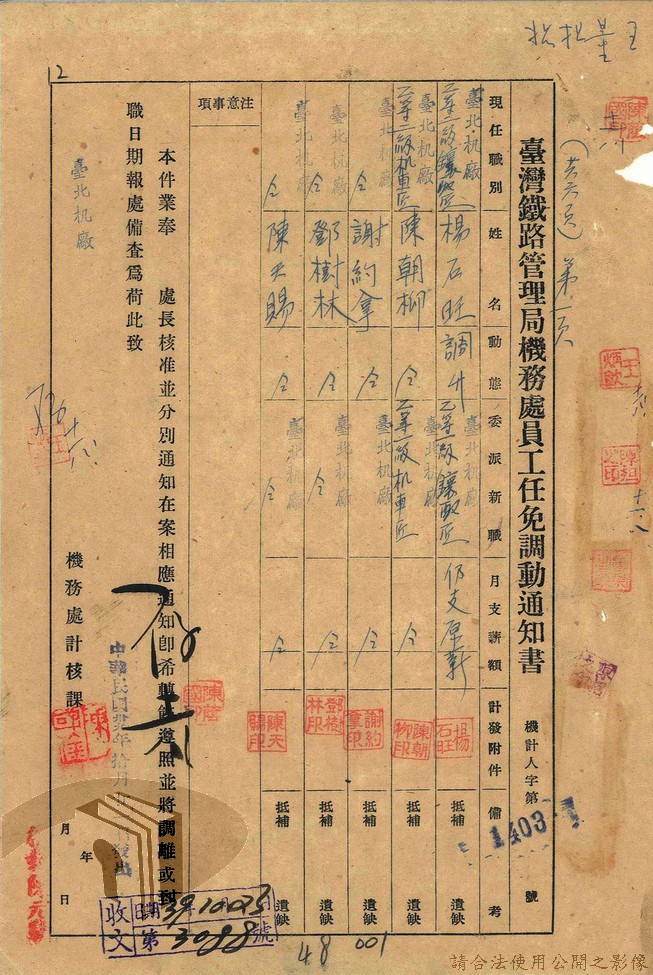 臺灣鐵路管理局機務處員工任免調動通知書
機計人字第 1403 號
(共六頁) 第一頁
現任職別 姓名 動態 委派新職 月支薪額 計發附件 備考
臺北机廠 乙等二級鑲配匠 楊石旺 調升 臺北机廠 乙等一級鑲配匠 仍支原薪 楊石旺 抵補 遺缺
臺北机廠 乙等二級机車匠 陳朝柳 仝 臺北机廠 乙等一級机車匠 仝 陳朝柳印 抵補 遺缺
臺北机廠 仝 謝約拿 仝 臺北机廠 仝 謝約拿印 抵補 遺缺
臺北机廠 仝 鄧樹林 仝 臺北机廠 仝 仝 鄧樹林印 抵補 遺缺
臺北机廠 仝 陳天賜 仝 臺北机廠 仝 仝 陳天賜印 抵補 遺缺
注意事項
本件業奉 處長核准並分別通知在案相應通知卽希轉飭遵照並將調離或到
職日期報處備查爲荷此致
臺北机廠
機務處計核課
年 月 日
收文
日期 39 10 23
第 3088 號
48 001
12
請合法使用公開之影像